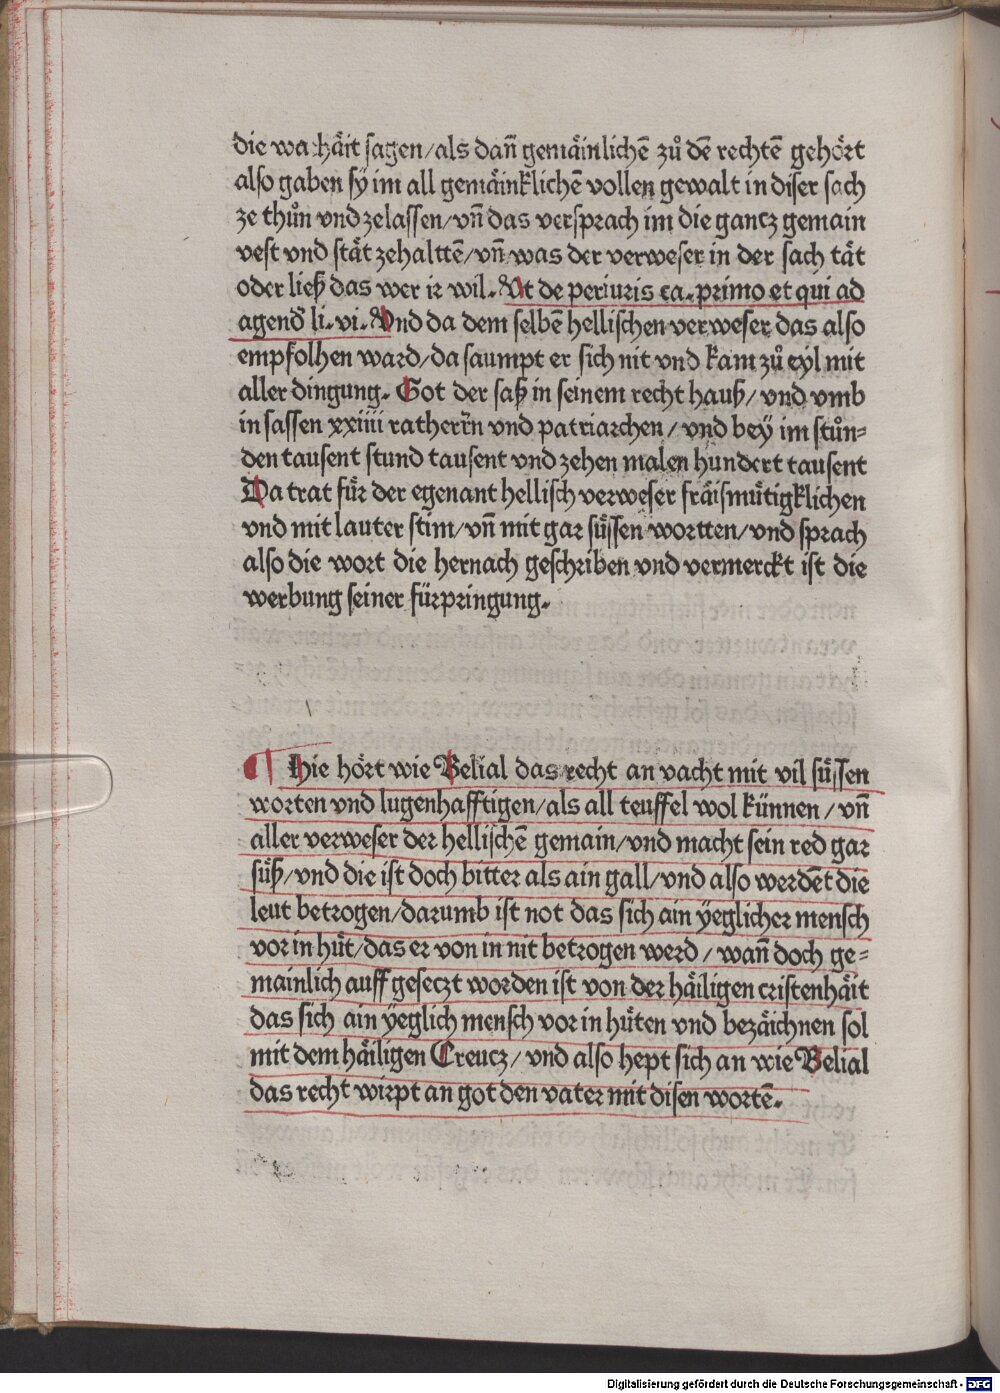 die warhäit sagen/als dañ gemäinlichē zů dē rechtē gehört
also gaben sÿ im all gemäinklichē vollen gewalt in diser sach
ze thůn vnd zelassen/vñ das versprach im die gancz gemain
vest vnd stät zehalttē/vñ was der verweser in der sach tät
oder ließ das wer ir wil. Vt de periuris ca. primo et qui ad
agend̄ li. vi. Vnd da dem selbē hellischen verweser das also
empfolhen ward/da saumpt er sich nit vnd kam zů eyl mit
aller dingung. Got der saß in seinem recht hauß/vnd vmb
in sassen xxiiii ratherr̄n vnd patriarchen/vnd beÿ im stůn⸗
den tausent stund tausent vnd zehen malen hundert tausent
Da trat für der egenant hellisch verweser fräismütigklichen
vnd mit lauter stim/vñ mit gar süssen wortten/vnd sprach
also die wort die hernach geschriben vnd vermerckt ist die
werbung seiner fürpringung.
¶ Hie hört wie Belial das recht an vacht mit vil süssen
worten vnd lugenhafftigen/als all teuffel wol künnen/vñ
aller verweser der hellischē gemain/vnd macht sein red gar
süß/vnd die ist doch bitter als ain gall/vnd also werdēt die
leut betrogen/darumb ist not das sich ain ÿeglicher mensch
vor in hüt/das er von in nit betrogen werd/wañ doch ge⸗
mainlich auff geseczt worden ist von der häiligen cristenhäit
das sich ain ÿeglich mensch vor in hüten vnd bezäichnen sol
mit dem häiligen Creucz/vnd also hept sich an wie Belial
das recht wirpt an got den vater mit disen wortē.
Digitalisierung gefördert durch die Deutsche Forschungsgemeinschaft - DFG